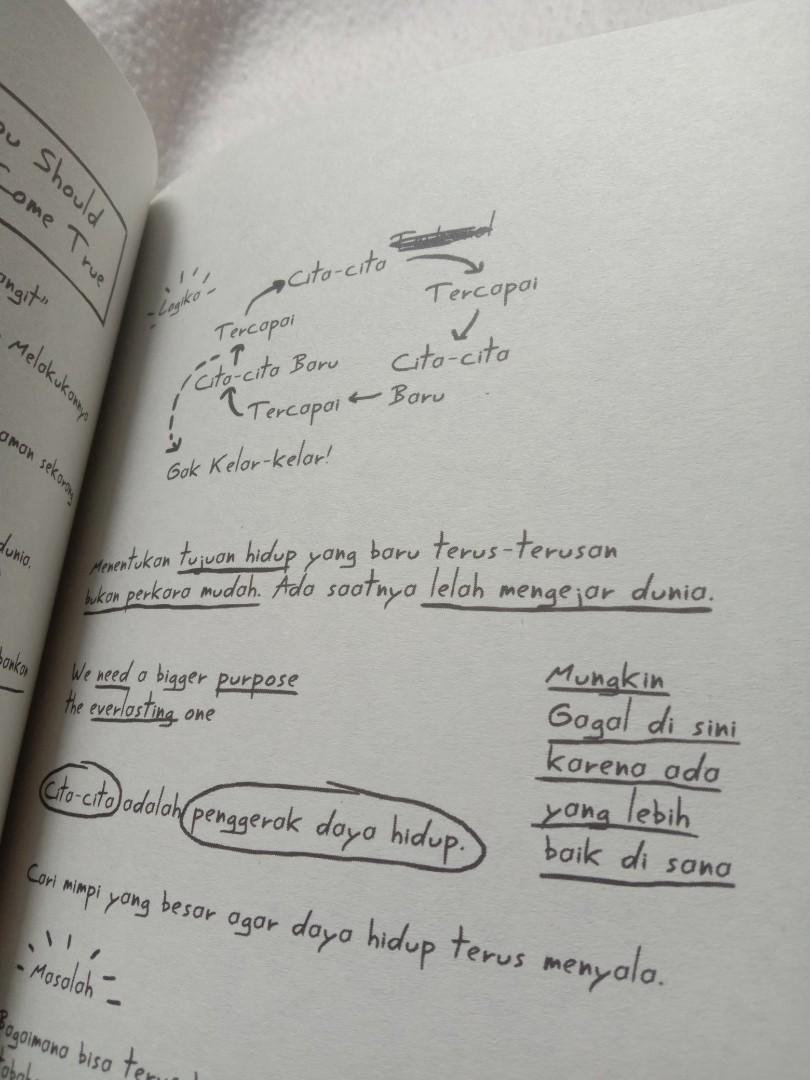 ou Should
Come True
angit"
Melakukannya
aman sekarang
dunia.
bankan
Logika
Cita-cita
Tercapai
Cita-cita
Baru
Tercapai
Cita-cita Baru
Tercapai
Gak Kelar-kelar!
Menentukan tujuan hidup yang baru terus-terusan
bukan perkara mudah. Ada saatnya lelah mengejar dunia.
We need a bigger purpose
the everlasting one
Mungkin
Gagal di sini
karena ada
yang lebih
baik di sana
Cita-cita adalah penggerak daya hidup.
Cari mimpi yang besar agar daya hidup terus menyala.
Masalah
Bagaimana bisa teru